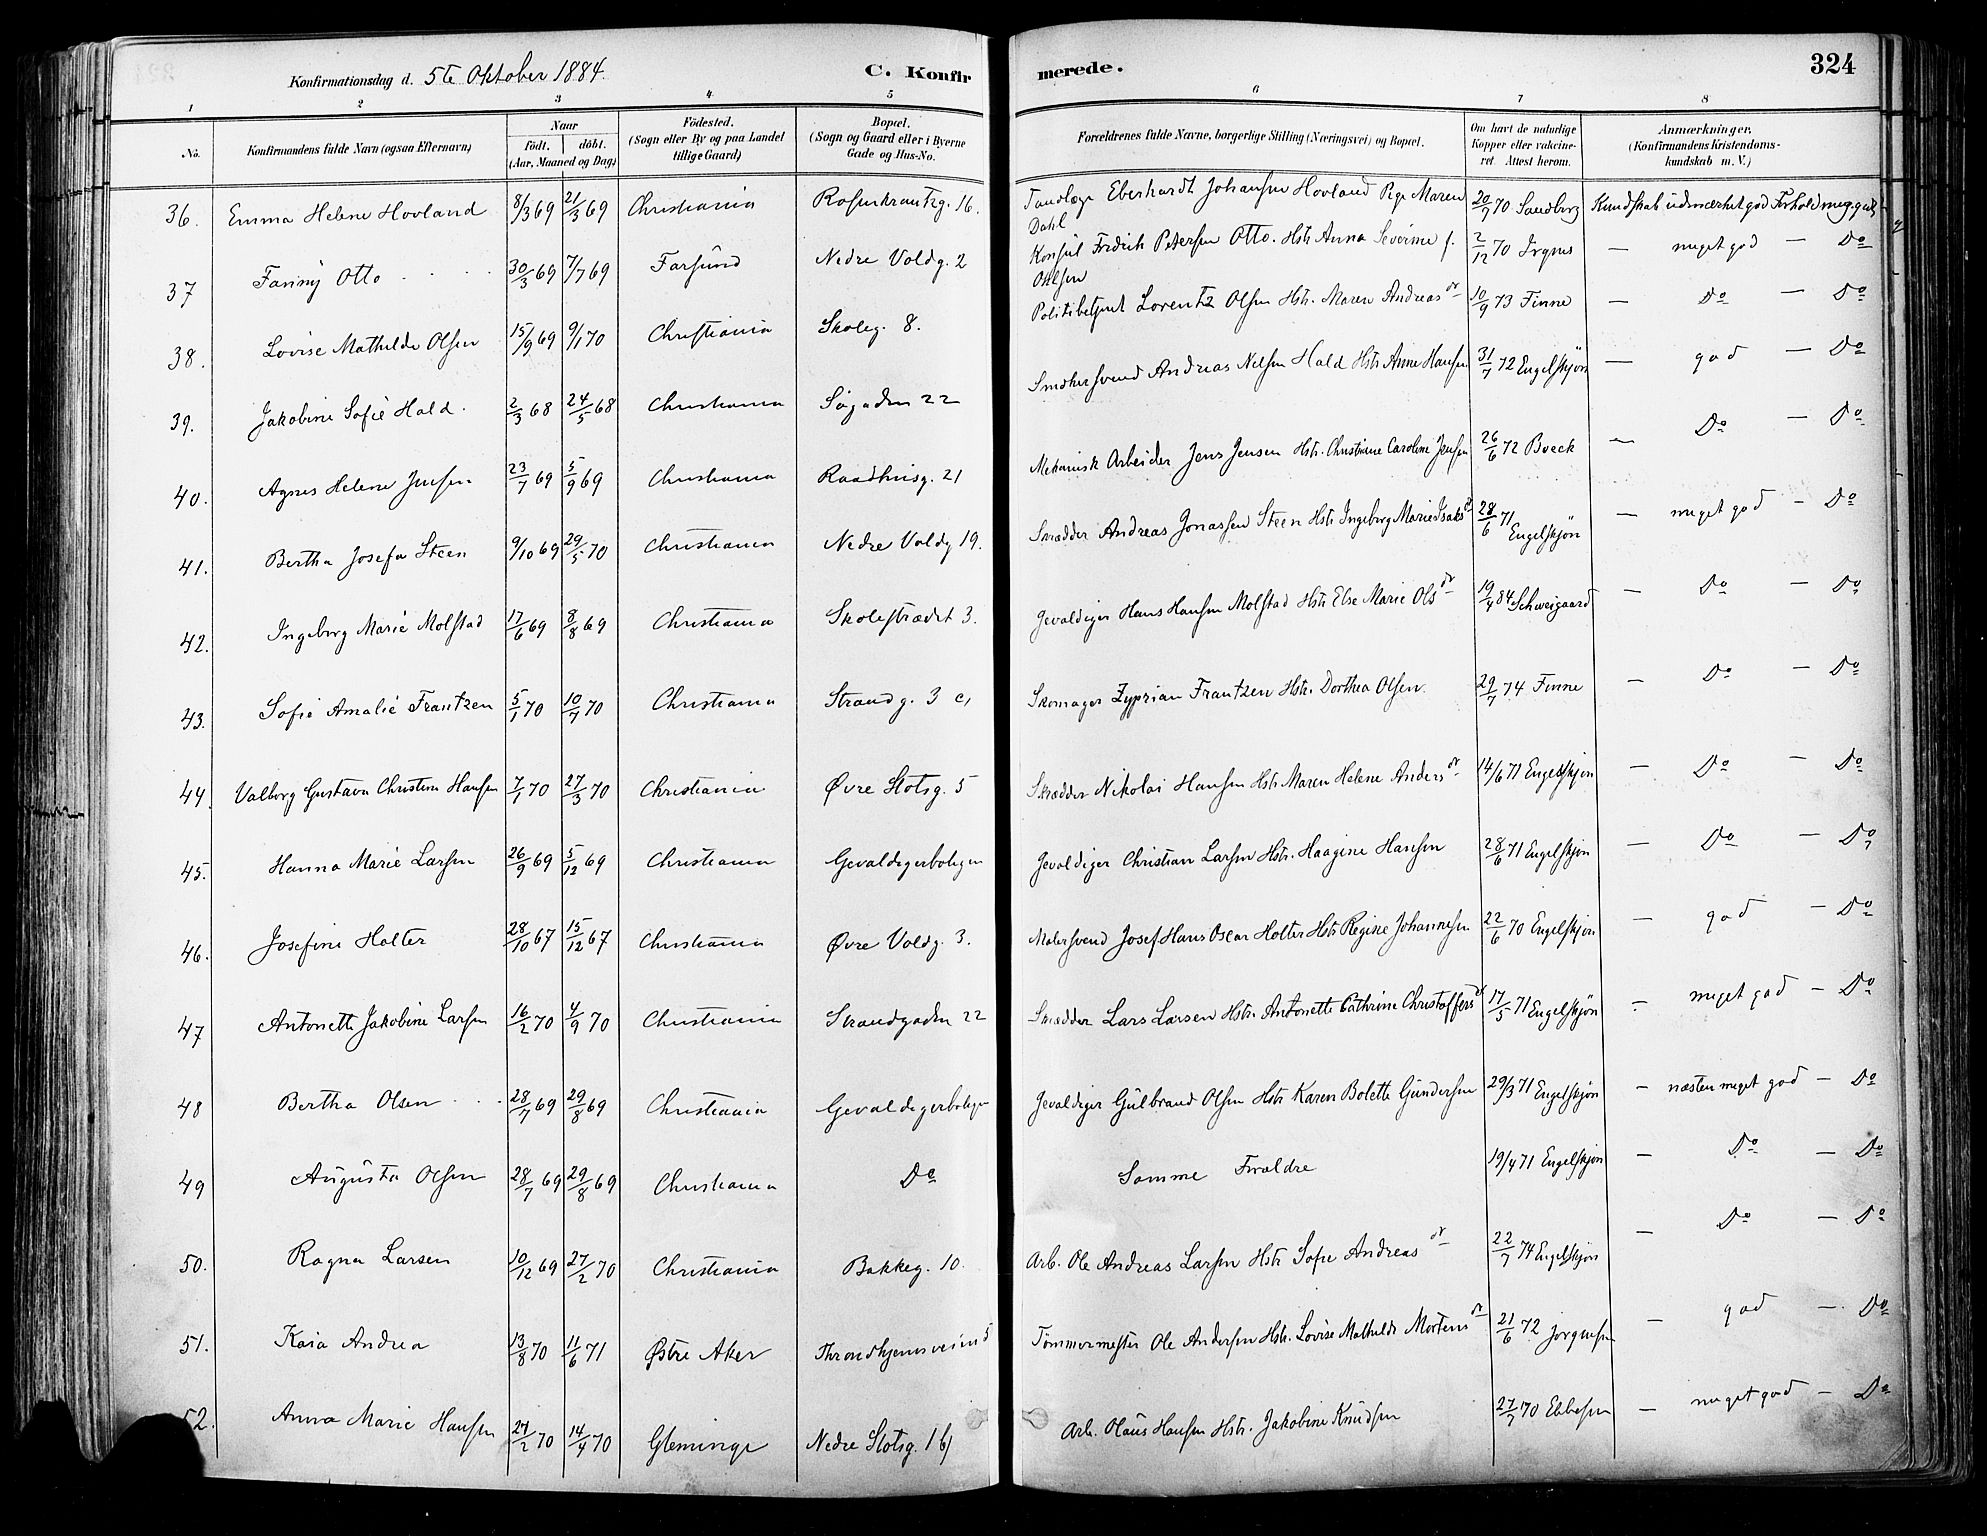 Konfirmationsdag d. 5te Oktober 1884. C. Konfir merede. 324
1 2 3 4 5 6 7 8
No. Konfirmandens fulde Navn (ogsaa Efternavn) Naar født. døbt. (Aar, Maaned og Dag) Fødested. (Sogn eller By og paa Landet tillige Gaard) Bopæl. (Sogn og Gaard eller i Byerne Gade og Hus-No. Forældrenes fulde Navne, borgerlige Stilling (Næringsvei) og Bopæl. Om havt de naturlige Kopper eller vakcineret. Attest herom. Anmærkninger. (Konfirmandens Kristendomskundskab m. V.)
36. Emma Helene Hovland 8/3 69 21/3 69 Christiania Rosenkrantzg. 16. Tandlæge Eberhardt Johansen Hovland Pige Maren Dahl 20/7 70 Sandberg Kundskab udmærket god Forhold meg. godt
37 Fanny Otto 30/3 69 7/7 69 Farsund Nedre Voldg. 2 Konsul Fredrik Petersen Otto. Hstr. Anna Severine f. Ohlsen 2/12 70 — meget god — Do
38. Lovise Mathilde Olsen 15/9 69 9/1 70 Christiania Skoleg. 8. Politibetjent Lorentz Olsen Hstr. Maren Andreasdr 10/9 73 Finne — Do — Do
39. Jakobine Sofie Hald. 2/3 68 24/5 68 Christiania Søgaden 22 Andreas Nilsen Hald Hstr Anne Hansen 31/7 72 Engelskjøn — god — Do
40. Agnes Helene Jensen 23/7 69 5/9 69 Christiania Raadhusg. 21 Mekanisk Arbeider Jens Jensen Hstr. Christiane Caroline Jensen 26/6 72 Boeck — Do — Do
41. Bertha Josefa Steen 9/10 69 29/5 70 Christiania Nedre Voldg 19. Skrædder Andreas Jonassen Steen Hstr Ingeborg Marie Isaksdr 28/6 71 Engelskjøn — meget god — Do
42. Ingeborg Marie Molstad 17/6 69 8/8 69 Christiania Skolestrædet 3. Gevaldiger Hans Hansen Molstad Hstr Else Marie Olsdr 19/4 84 Schweigaard — Do — Do
43. Sofie Amalie Frantzen 5/1 70 10/7 70 Christiania Strandg. 3 c, Skomager Zyprian Frantzen Hstr. Dorthea Olsen. 29/7 74 Finne — Do — Do
44. Valborg Gustava Christine Hansen 7/1 70 27/3 70 Christiania Øvre Slotsg. 5 Skrædder Nikolai Hansen Hstr Maren Helene Andersdr 14/6 71 Engelskjøn — Do — Do
45. Hanna Marie Larsen 26/9 69 5/12 69 Christiania Gevaldigerboligen Gevaldiger Christian Larsen Hstr. Haagine Hansen 28/6 71 Engelskjøn — Do — Do
46. Josefine Holter 28/10 67 15/12 67 Christiania Øvre Voldg. 3. Malersvend Josef Hans Oscar Holter Hstr Regine Johannesen 22/6 70 Engelskjøn — god — Do
47 Antonette Jakobine Larsen 16/2 70 4/9 70 Christiania Strandgaden 22 Skrædder Lars Larsen Hstr. Antonette Cathrine Christoffersdr 17/5 71 Engelskjøn — meget god — Do
48 Bertha Olsen 28/7 69 29/8 69 Christiania Gevaldigerboligen Gevaldiger Gulbrand Olsen Hstr Karen Bolette Gundersen 29/3 71 Engelskjøn — næsten meget god — Do
49 Augusta Olsen 28/7 69 29/8 69 Christiania Do Samme Forældre 19/4 71 Engelskjøn — Do — Do
50. Ragna Larsen 10/12 69 27/2 70 Christiania Bakkeg. 10. Arb. Ole Andreas Larsen Hstr Sofie Andreasdr 22/7 74 Engelskjøn — Do — Do
51. Kaia Andrea 13/8 70 11/6 71 Østre Aker Throndhjemsveien 5 Tømmermester Ole Andersen Hstr. Lovise Mathilde Mortensdr 21/6 72 Jorgensen — god — Do
52. Anna Marie Hansen 27/2 70 14/4 70 Gleminge Nedre Slotsg. 1 b) Arb. Olaus Hansen Hstr. Jakobine Knudsen 27/7 70 Ebbesen — meget god — Do